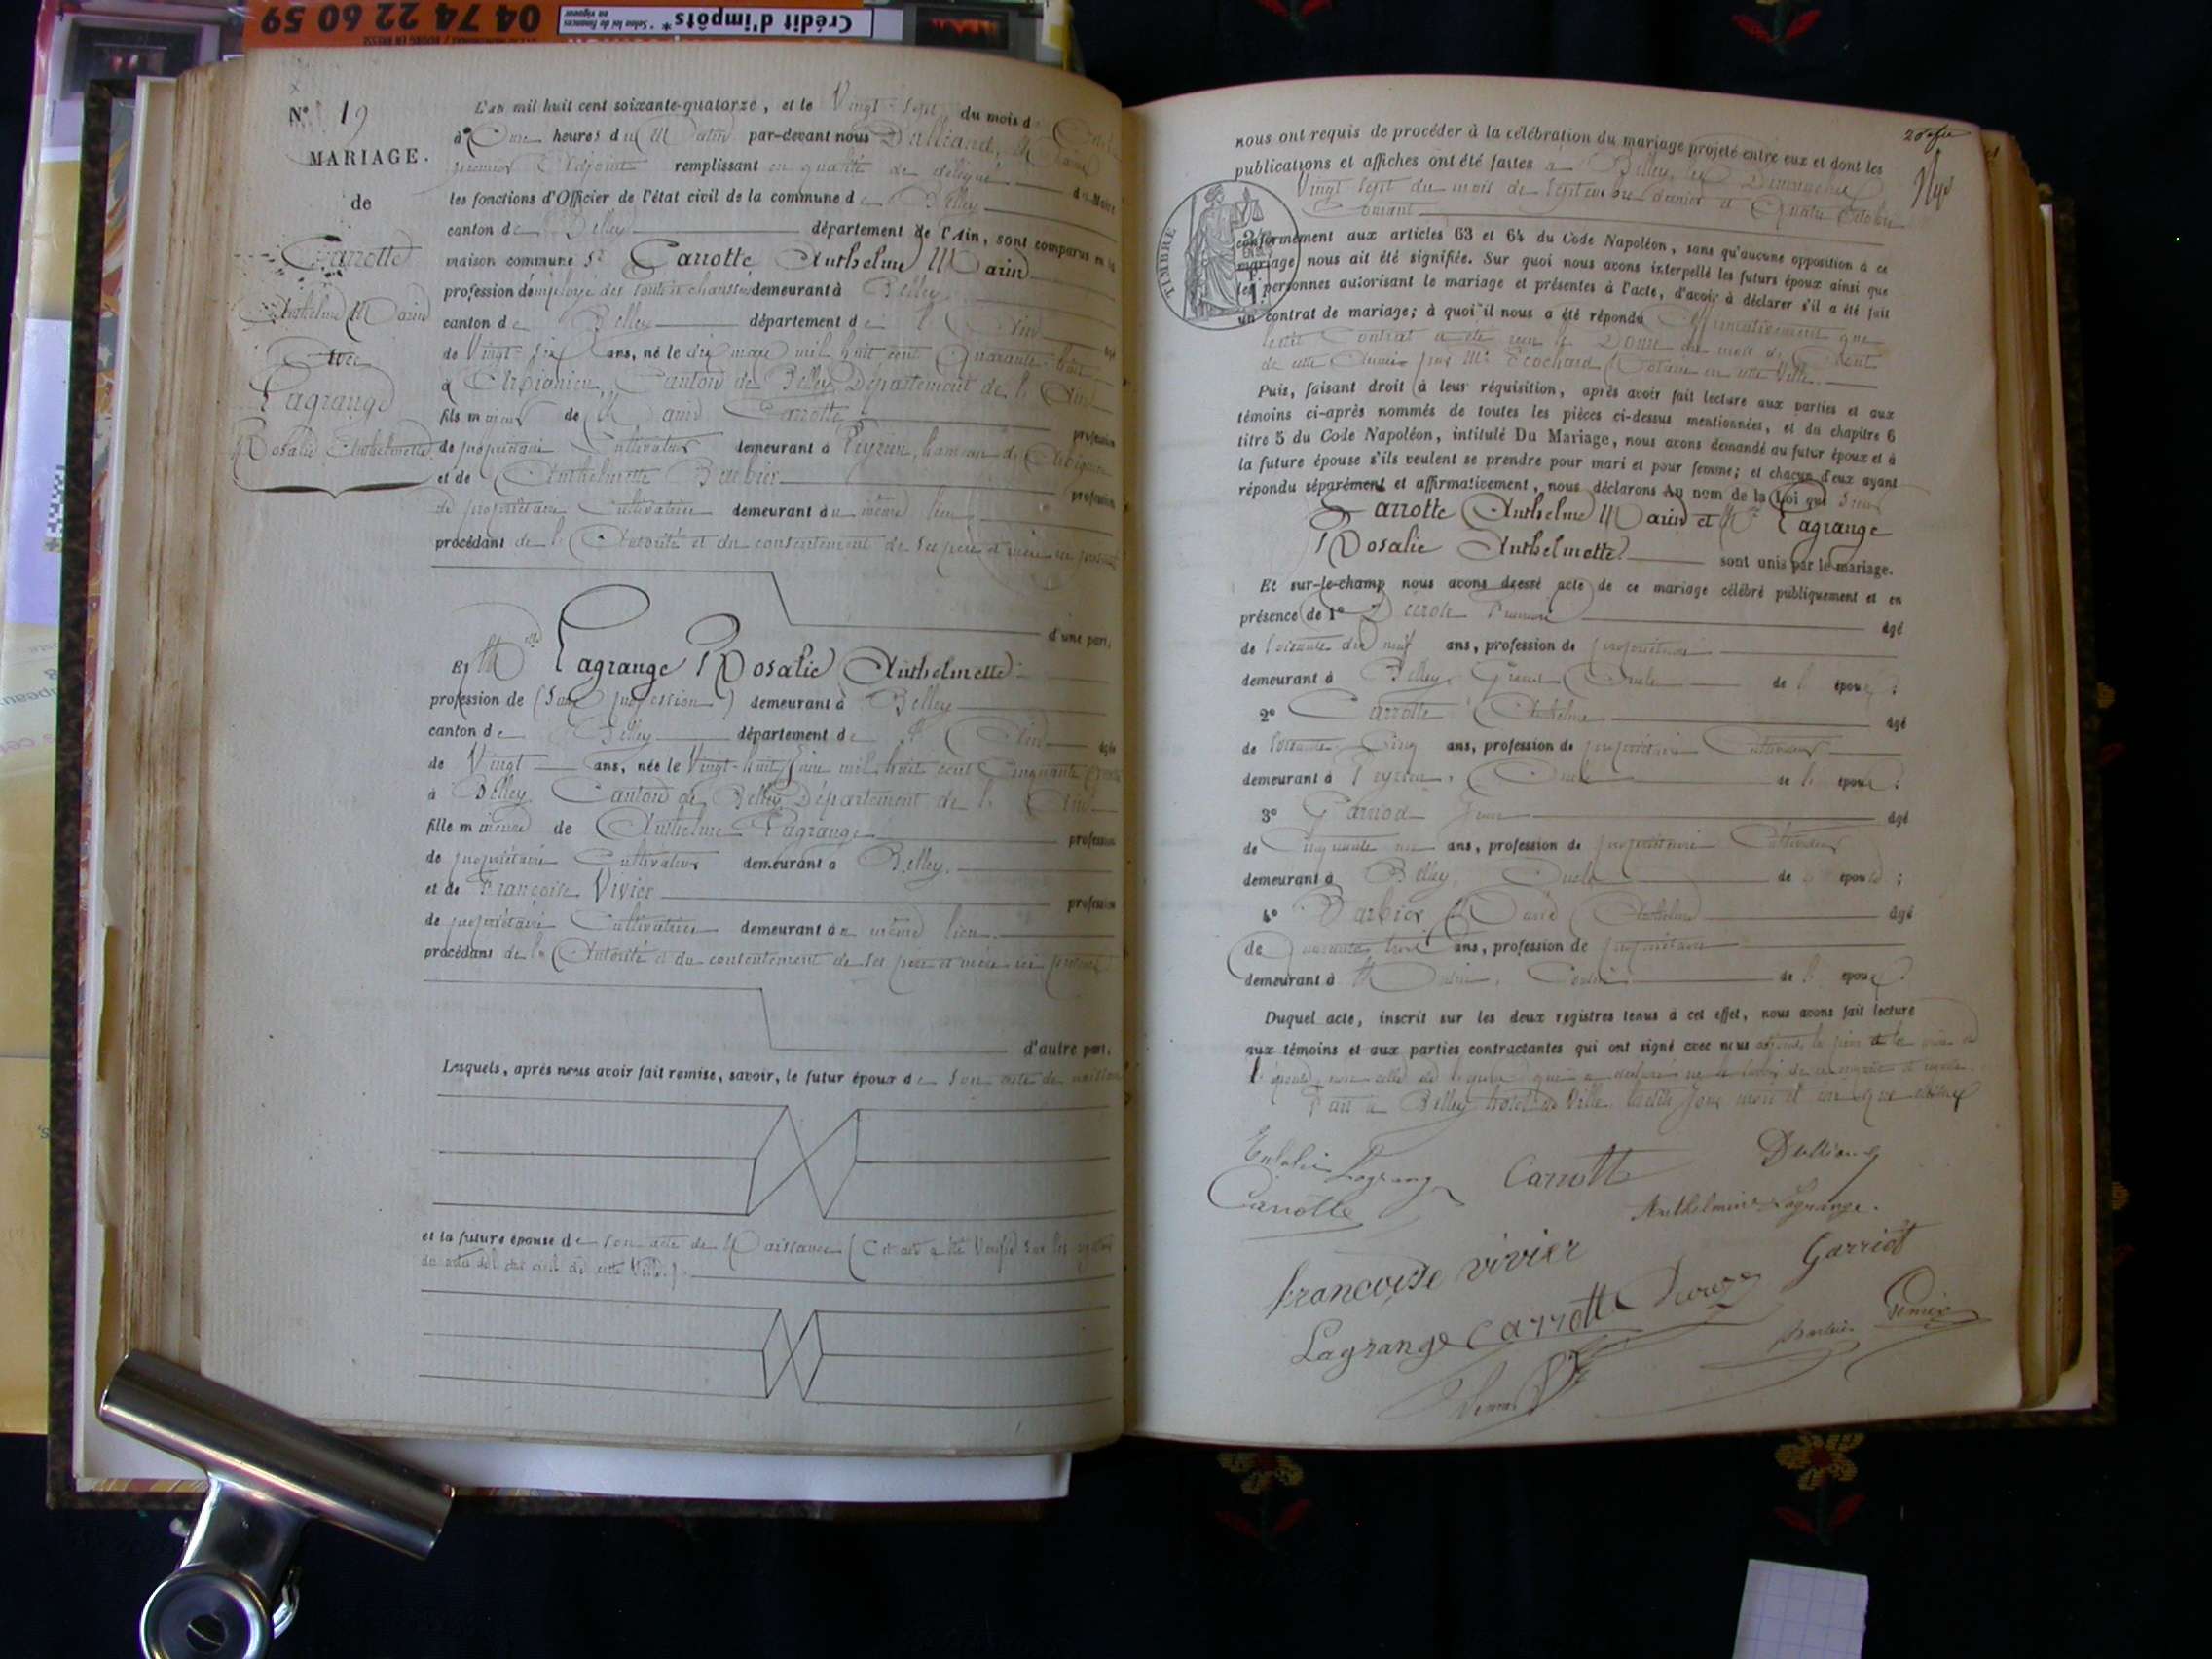 04 74 22 60 59
Crédit d'impôts*
N° 19
MARIAGE.
de
Carrotte
Anthelme Marin
Avec
Lagrange
Rosalie Anthelmette
L'an mil huit cent soixante-quatorze, et le Vingt-Sept du mois d
à Onze heures du Matin par-devant nous Dulliand,
premier Adjoint remplissant en qualité de délégué du Maire
les fonctions d'Officier de l'état civil de la commune de Belley
canton de Belley département de l'Ain, sont comparus en la
maison commune Sr Carrotte Anthelme Marin
profession d'employé des Ponts et chaussées demeurant à Belley
canton de Belley département de l'Ain âgé
de Vingt-Six ans, né le dix mars mil huit cent Quarante-huit
à Arbignieu, Canton de Belley Département de l'Ain
fils majeur de Marin Carrotte profession
de propriétaire Cultivateur demeurant à Peyzieu, hameau d'Arbignieu
et de Anthelmette Barbier profession
de propriétaire Cultivatrice demeurant au même lieu
procédant de l'Autorité et du consentement de ses père et mère ici présents
d'une part.
Et Mlle Lagrange Rosalie Anthelmette
profession de (Sans profession) demeurant à Belley
canton de Belley département de l'Ain âgée
de Vingt ans, née le Vingt-huit Juin mil huit cent Cinquante
à Belley Canton de Belley Département de l'Ain
fille majeure de Anthelme Lagrange profession
de propriétaire Cultivateur demeurant à Belley.
et de Françoise Vivier profession
de propriétaire Cultivatrice demeurant au même lieu.
procédant de l'Autorité et du consentement de ses père et mère ici présents
d'autre part.
Lesquels, après nous avoir fait remise, savoir, le futur époux de Son acte de naissance
et la future épouse de Son acte de Naissance (Cet acte a été Vérifié sur les registres
des actes de l'état civil de cette Ville.)
nous ont requis de procéder à la célébration du mariage projeté entre eux et dont les
publications et affiches ont été faites à Belley, les Dimanches
Vingt Sept du mois de Septembre dernier et Quatre Octobre
Courant
TIMBRE
conformément aux articles 63 et 64 du Code Napoléon, sans qu'aucune opposition à ce
mariage nous ait été signifiée. Sur quoi nous avons interpellé les futurs époux ainsi que
les personnes autorisant le mariage et présentes à l'acte, d'avoir à déclarer s'il a été fait
un contrat de mariage; à quoi il nous a été répondu Affirmativement que
ledit Contrat a été reçu le Douze du mois d'
de cette Année par Me Ecochard Notaire en cette Ville.
Puis, faisant droit à leur réquisition, après avoir fait lecture aux parties et aux
témoins ci-après nommés de toutes les pièces ci-dessus mentionnées, et du chapitre 6
titre 5 du Code Napoléon, intitulé Du Mariage, nous avons demandé au futur époux et à
la future épouse s'ils veulent se prendre pour mari et pour femme; et chacun d'eux ayant
répondu séparément et affirmativement, nous déclarons Au nom de la Loi que Sieur
Carrotte Anthelme Marin et Mlle Lagrange
Rosalie Anthelmette sont unis par le mariage.
Et sur-le-champ nous avons dressé acte de ce mariage célébré publiquement et en
présence de 1° âgé
de Soixante dix neuf ans, profession de propriétaire
demeurant à Belley, Grand Oncle de l'époux;
2° Carrotte Anthelme âgé
de Soixante Cinq ans, profession de propriétaire Cultivateur
demeurant à Peyzieu, Oncle de l'époux;
3° âgé
de Cinquante un ans, profession de propriétaire Cultivateur
demeurant à Belley, Oncle de l'épouse;
4° Barbier Marie Anthelme âgé
de Quarante trois ans, profession de propriétaire
demeurant à Cousin de l'époux;
Duquel acte, inscrit sur les deux registres tenus à cet effet, nous avons fait lecture
aux témoins et aux parties contractantes qui ont signé avec nous
Fait à Belley hotel de Ville, ledits jour mois et an que dessus
Eulalie Lagrange Carrotte Dulliand
Carrotte Anthelmine Lagrange.
françoise vivier Garriot
Lagrange Carrotte